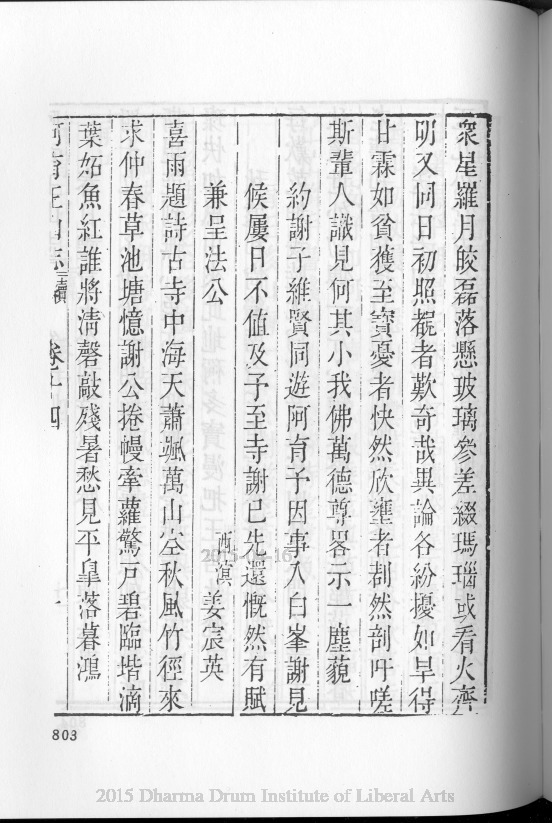 衆星羅月皎磊落懸玻瓈參差綴瑪瑙或看火齊
明又同日初照覩者歎奇哉異論各紛擾如旱得
甘霖如貧獲至寶憂者快然欣壅者劃然剖吁嗟
斯輩人識見何其小我佛萬德尊畧示一塵藐
約謝子維賢同遊阿育予因事入白峯謝見
候屢日不值及予至寺謝已先還慨然有賦
兼呈法公
西滇 姜宸英
喜雨題詩古寺中海天蕭颯萬山空秋風竹徑來
求仲春草池塘憶謝公捲幔牽蘿驚戸碧臨堦滴
葉妬魚紅誰將淸磬敲殘暑愁見平皐落暮鴻
阿育王山志 卷十四
803
2015 Dharma Drum Institute of Liberal Arts